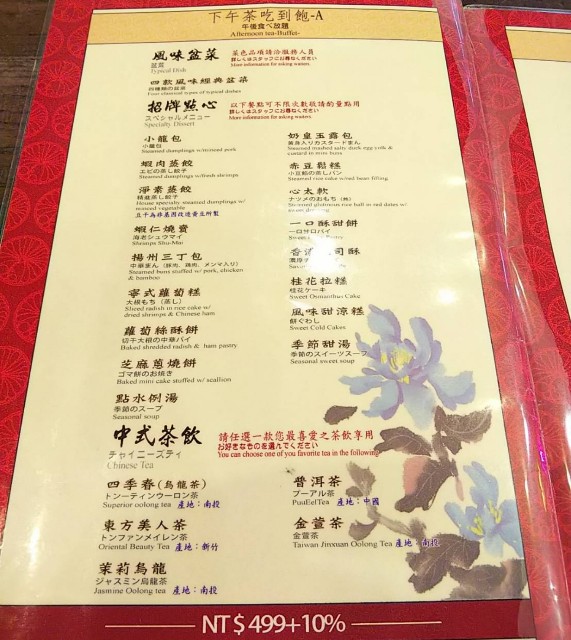 下午茶吃到飽-A
午後食べ放題
Afternoon tea-Buffet-
風味盆菜
盆菜
Typical Dish
菜色品項請洽服務人員
詳しくはスタッフにお尋ねください
More information for asking waiters.
四款風味經典盆菜
四種類の盆菜
Four classical types of typical dishes
招牌點心
スペシャルメニュー
Specialty Dissert
以下餐點可不限次數敬請酌量點用
詳しくはスタッフにお尋ねください
More information for asking waiters.
小籠包
小籠包
Steamed dumplings w/minced pork
奶皇玉露包
黄身入りカスタードまん
Steamed mashed salty duck egg yolk & custard in mini buns
蝦肉蒸餃
エビの蒸し餃子
Steamed dumplings w/fresh shrimps
赤豆鬆糕
小豆餡の蒸しパン
Steamed rice cake w/red bean filling
淨素蒸餃
精進蒸し餃子
House specialty steamed dumplings w/ minced vegetable
豆干為非基因改造黃豆所製
心太軟
ナツメのおもち
Steamed glutinous rice ball in red dates w/
蝦仁燒賣
海老シュウマイ
Shrimps Shu-Mai
一口酥甜餅
一口サロパイ
Sweet Pastry
揚州三丁包
中華まん（豚肉、鶏肉、メンマ入り）
Steamed buns stuffed w/ pork, chicken & bamboo
香濃 司酥
寧式蘿蔔糕
大根もち（蒸し）
Sliced radish in rice cake w/ dried shrimps & Chinese ham
桂花拉糕
桂花ケーキ
Sweet Osmanthus Cake
蘿蔔絲酥餅
切干大根の中華パイ
Baked shredded radish & ham pastry
風味甜涼糕
餅ぐわし
Sweet Cold Cakes
芝麻蔥燒餅
ゴマ餅のお焼き
Baked mini cake stuffed w/ scallion
季節甜湯
季節のスイーツスープ
Seasonal sweet soup
點水例湯
季節のスープ
Seasonal soup
中式茶飲
チャイニーズティ
Chinese Tea
請任選一款您最喜愛之茶飲享用
お好きなものを選んでください
You can choose one of you favorite tea in the following
四季春(烏龍茶)
トンーティンウーロン茶
Superior oolong tea 產地：南投
普洱茶
プーアル茶
PuuErlTea 產地：中國
東方美人茶
トンファンメイレン茶
Oriental Beauty Tea 產地：新竹
金萱茶
金萱茶
Taiwan Jinxuan Oolong Tea 產地：南投
茉莉烏龍
ジャスミン烏龍茶
Jasmine Oolong tea 產地：南投
NT$499+10%